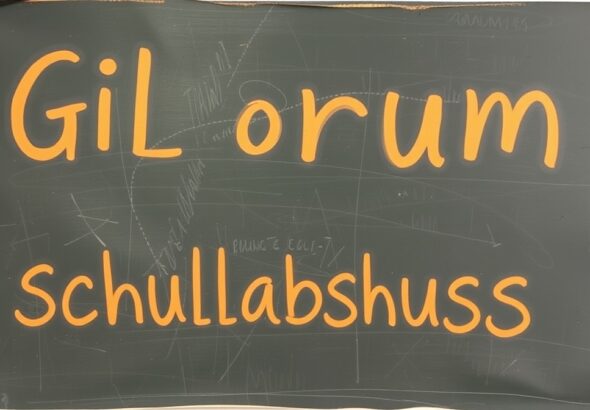 GiL orum
schullabshuss